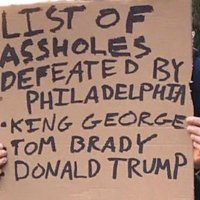 LIST OF
ASSHOLES
DEFEATED BY
PHILADELPHIA
•KING GEORGE
TOM BRADY
DONALD TRUMP